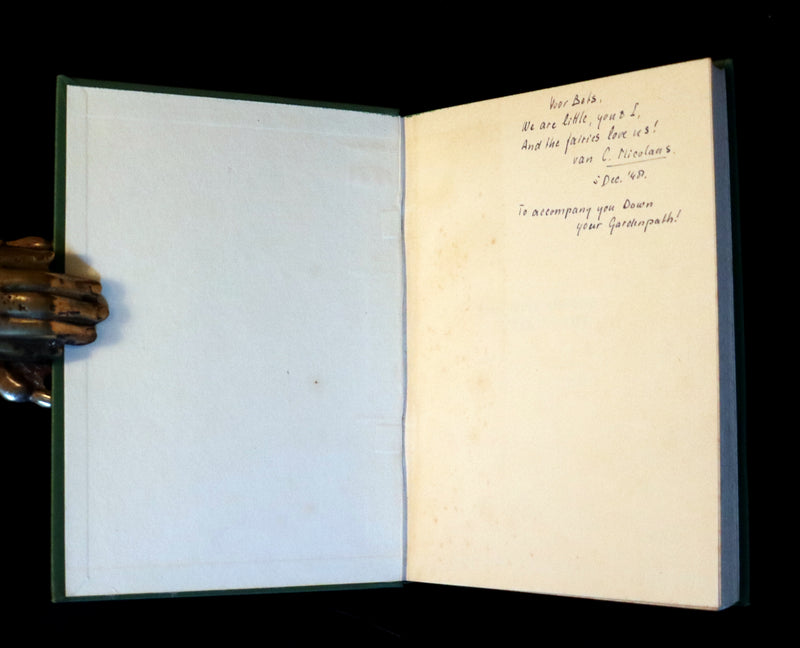 Voor Bets.
We are little, you & I,
And the fairies love us!
van C. Nicolaas.
5 Dec. '48.
To accompany you Down
your Gardenpath!